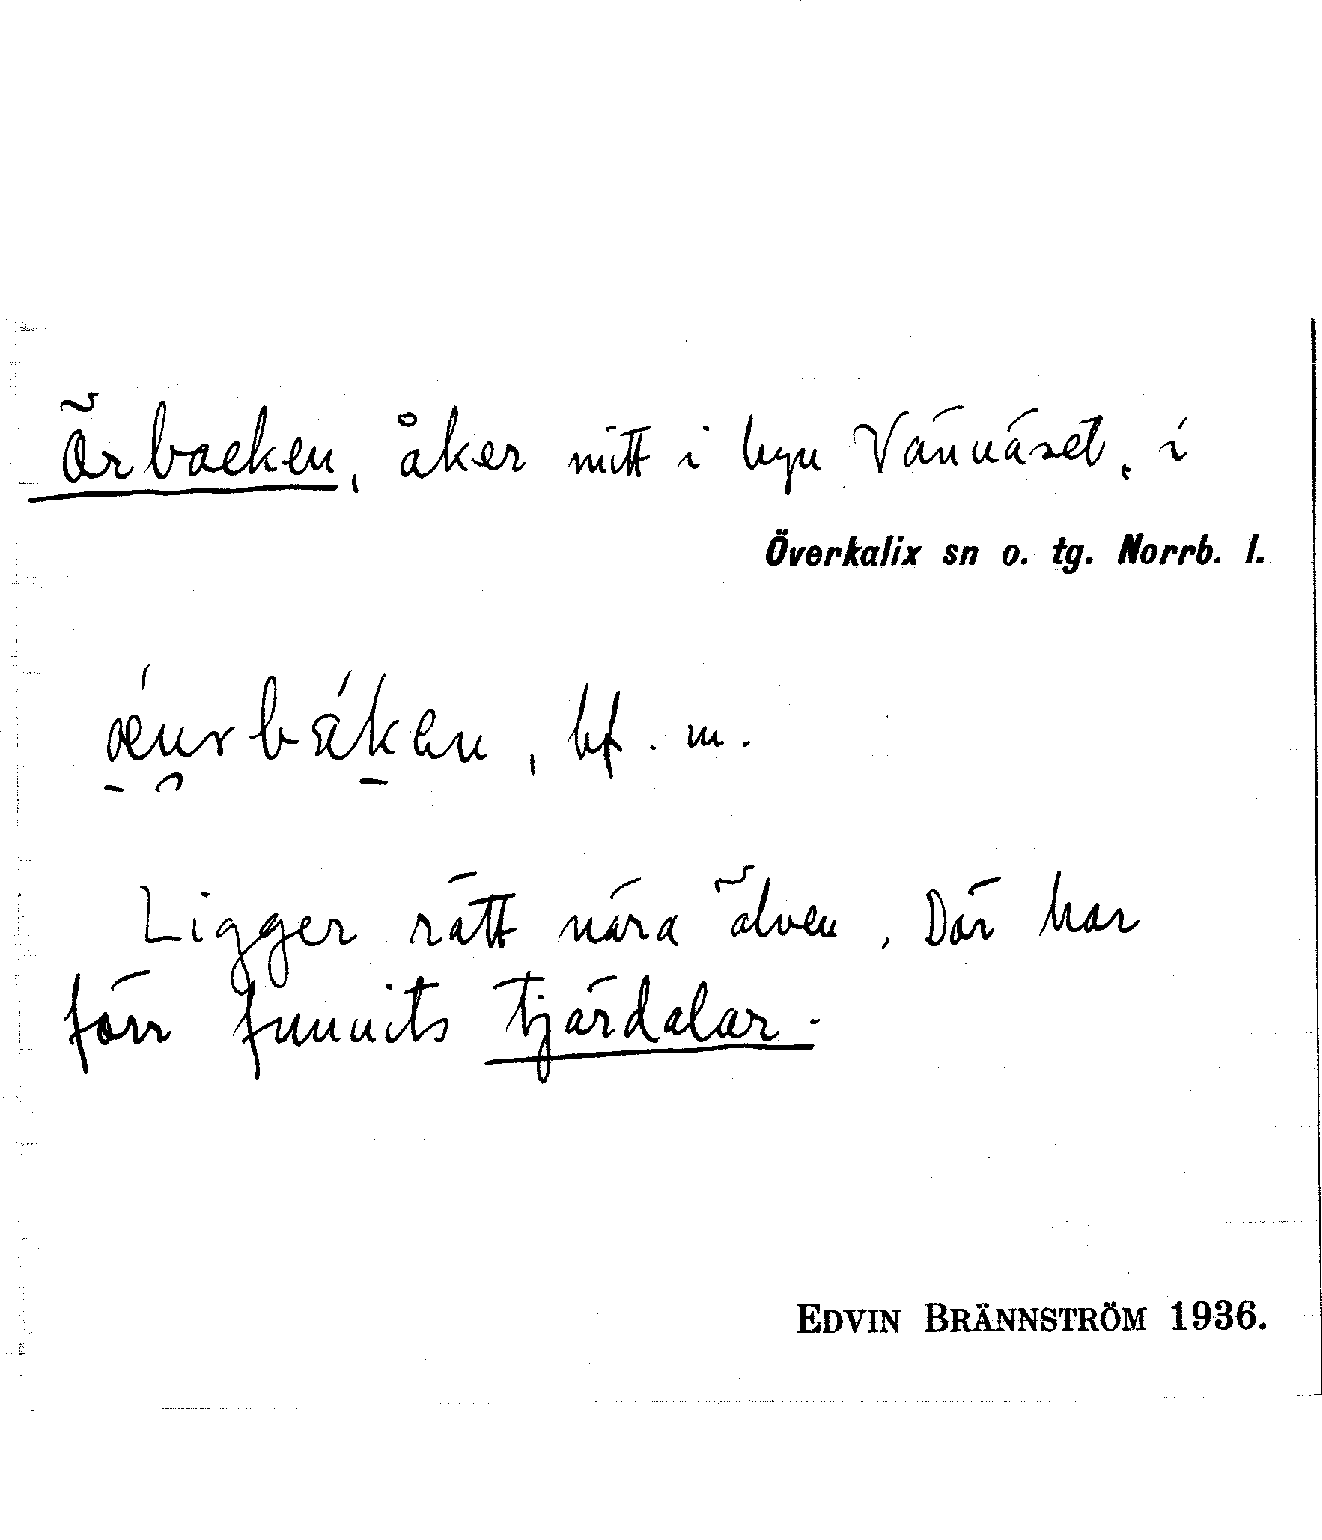 Örbacken, åker mitt i byn Vännäset, i
Överkalix sn o. tg. Norrb. l.
œ́urbákən, bf. m.
Ligger rätt nära älven. Där har
förr funnits tjärdalar.
EDVIN BRÄNNSTRÖM 1936.